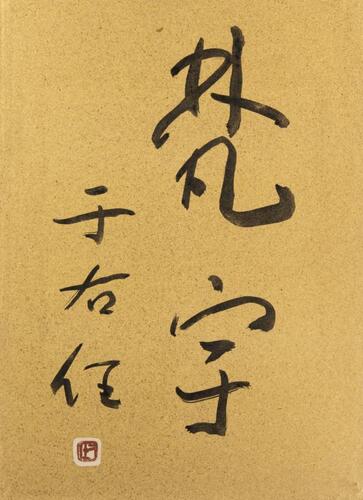 梵宇
于右任